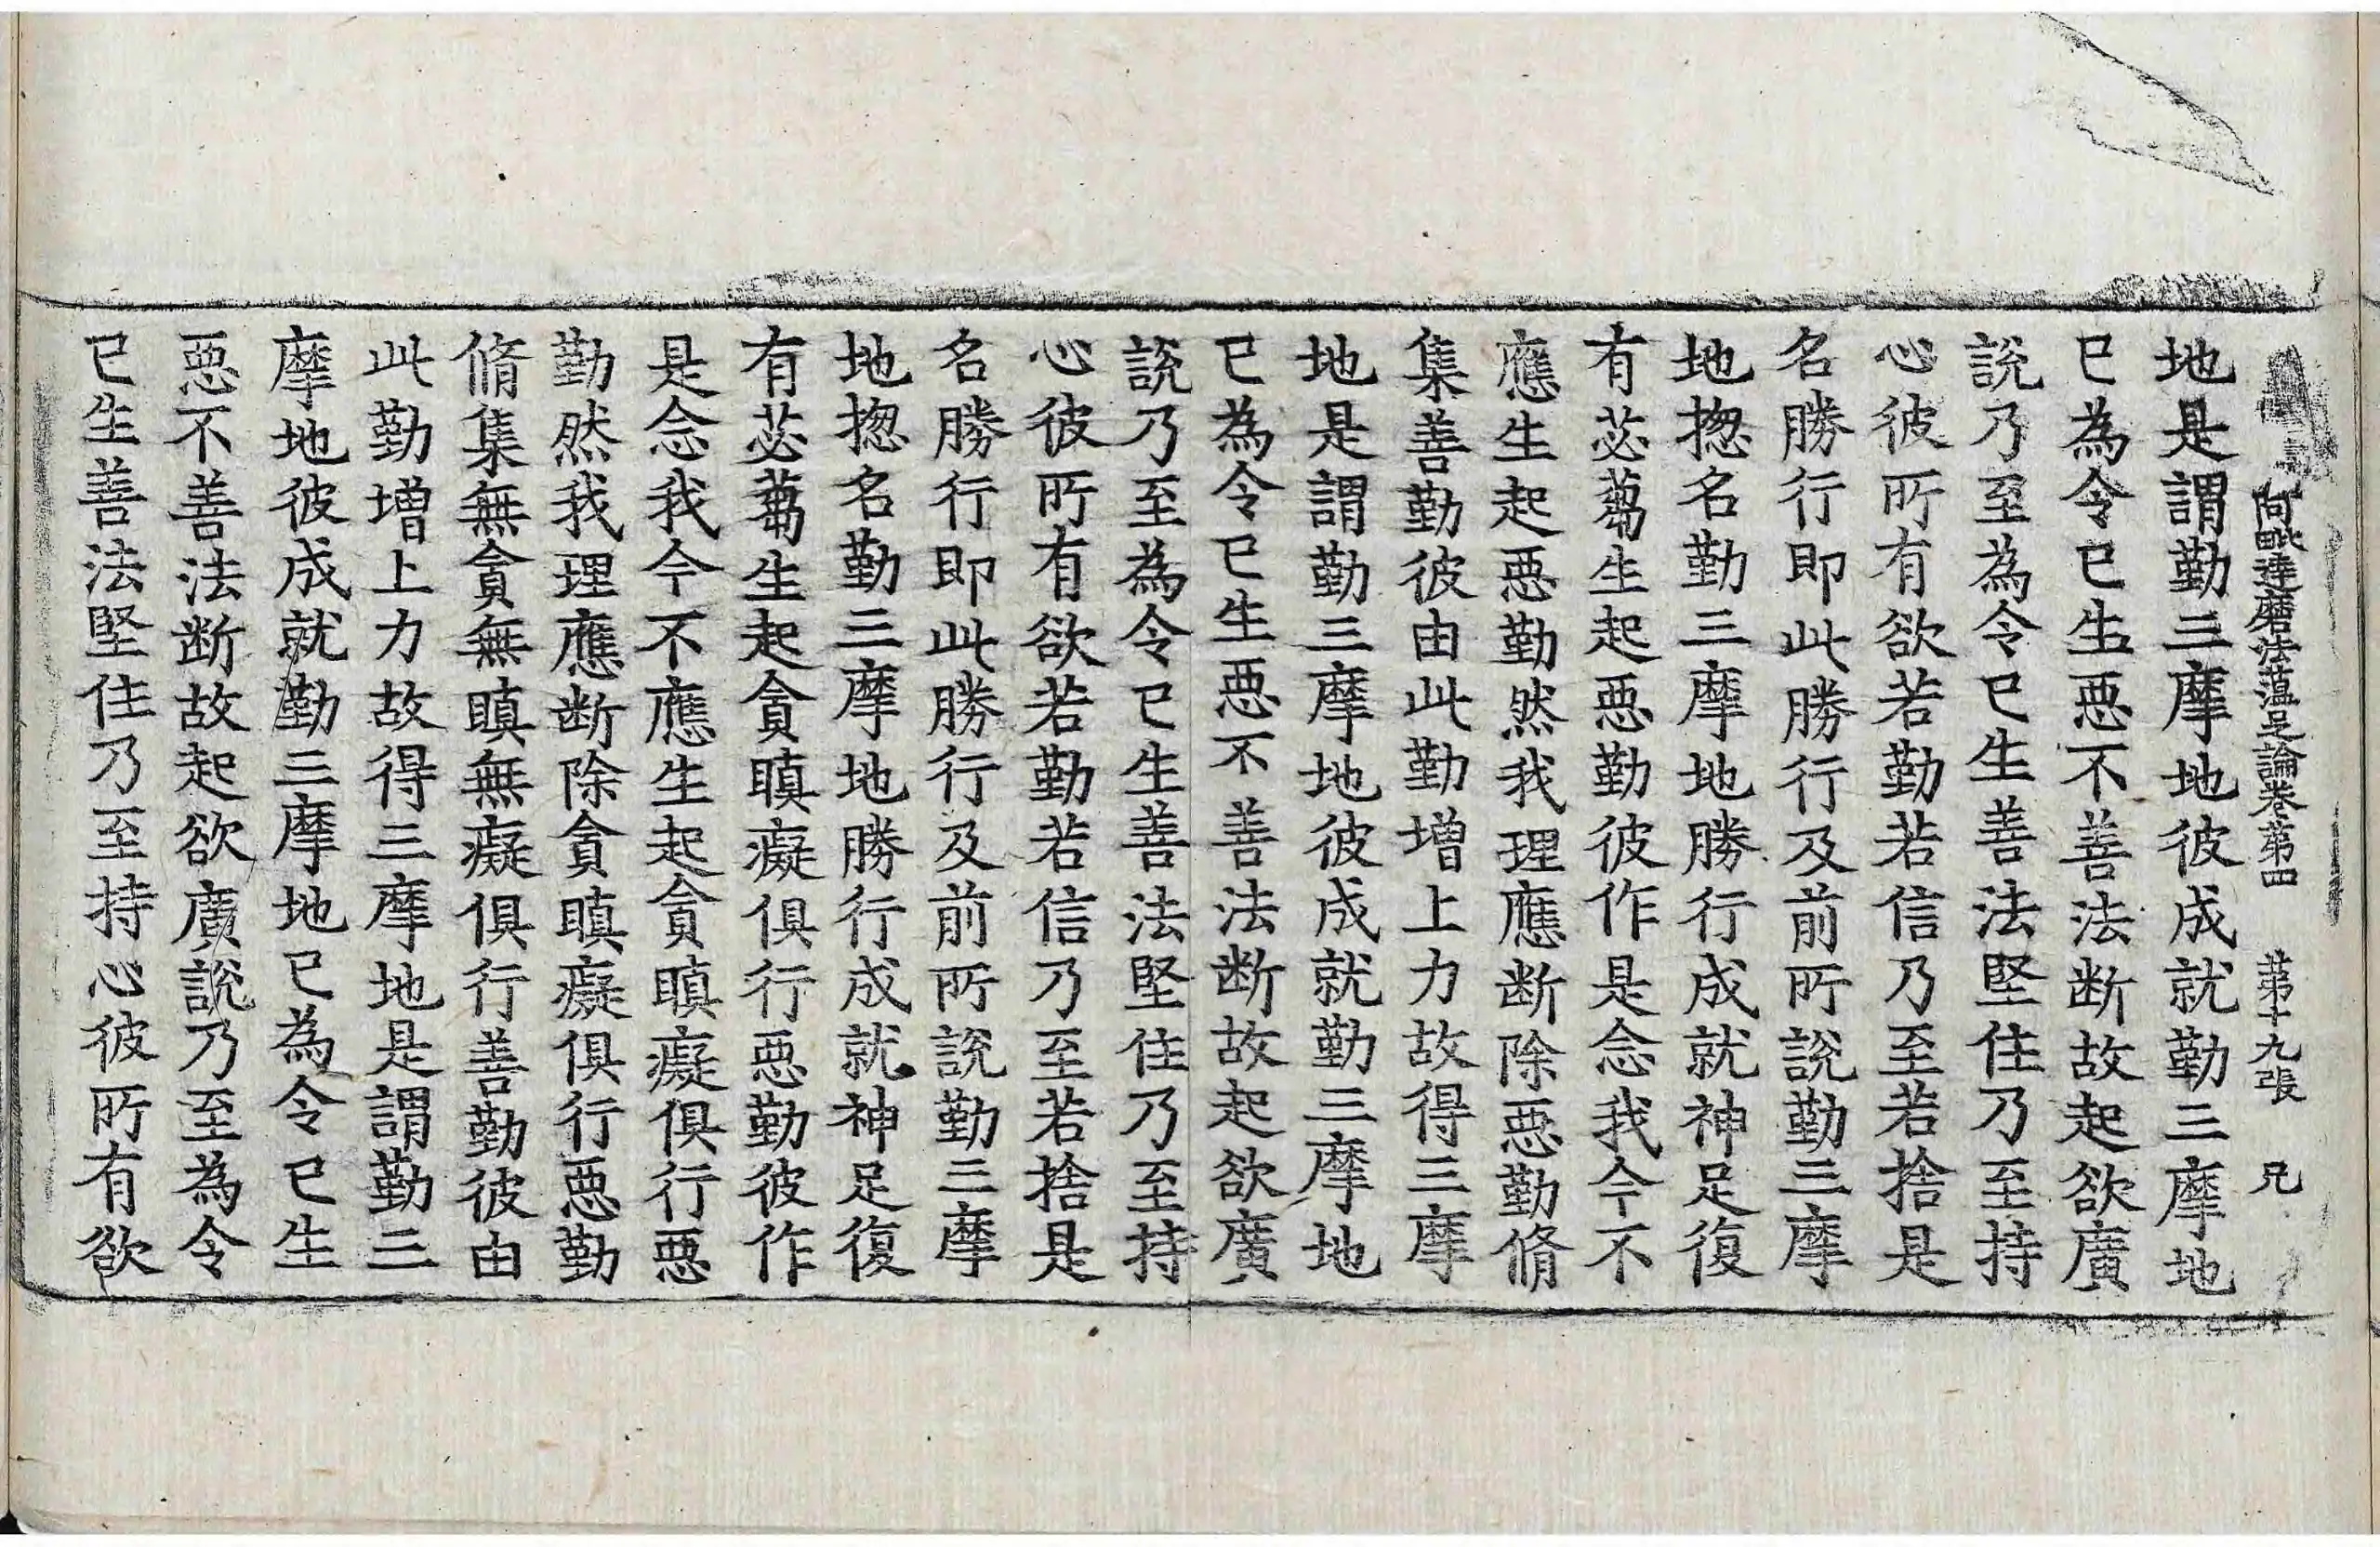 阿毗達磨法蕴足論卷第四 第十九張 兄
地是謂勤三摩地彼成就勤三摩地
已為令已生惡不善法断故起欲廣
說乃至為令已生善法堅住乃至持
心彼所有欲若勤若信乃至若捨是
名勝行即此勝行及前所說勤三摩
地揔名勤三摩地勝行成就神足復
有苾蒭生起惡勤彼作是念我今不
應生起惡勤然我理應断除惡勤脩
集善勤彼由此勤增上力故得三摩
地是謂勤三摩地彼成就勤三摩地
已為令已生惡不善法断故起欲廣
說乃至為令已生善法堅住乃至持
心彼所有欲若勤若信乃至若捨是
名勝行即此勝行及前所說勤三摩
地揔名勤三摩地勝行成就神足復
有苾蒭生起貪瞋癡俱行惡勤彼作
是念我今不應生起貪瞋癡俱行惡
勤然我理應断除貪瞋癡俱行惡勤
脩集無貪無瞋無癡俱行善勤彼由
此勤增上力故得三摩地是謂勤三
摩地彼成就勤三摩地已為令已生
惡不善法断故起欲廣說乃至為令
已生善法堅住乃至持心彼所有欲